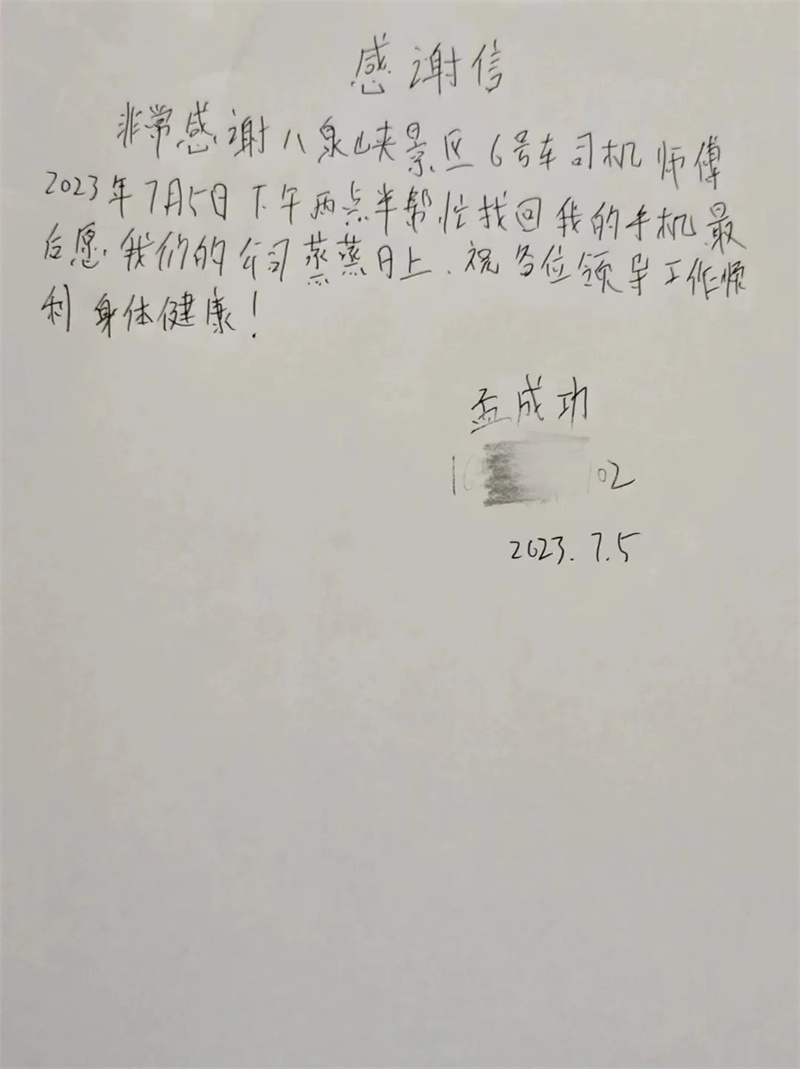 感谢信
非常感谢八泉峡景区6号车司机师傅
2023年7月5日下午两点半帮忙找回我的手机最
后愿我们的公司蒸蒸日上、祝各位领导工作顺
利身体健康!
孟成功
02
2023.7.5